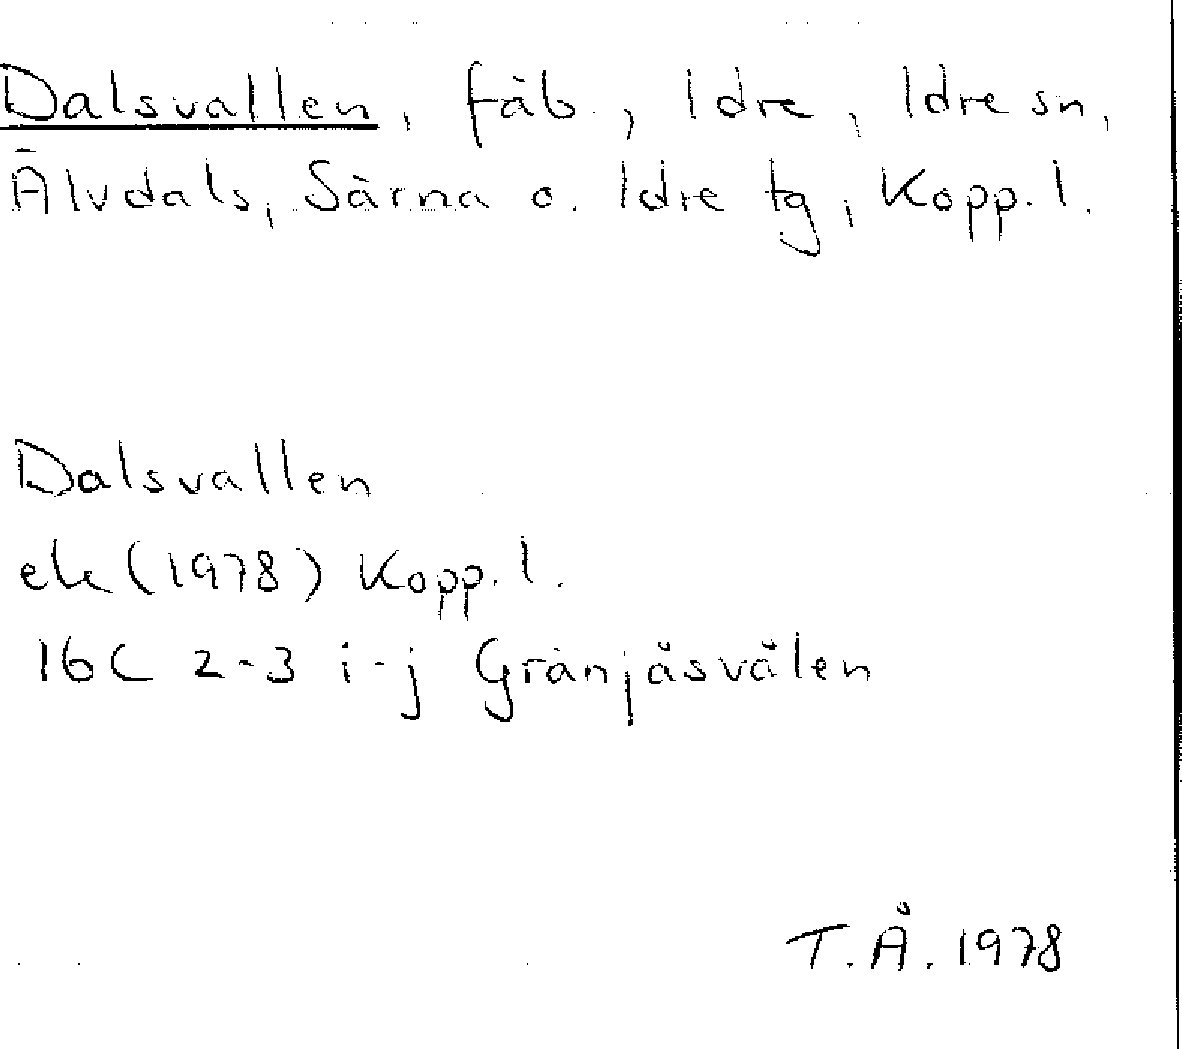 Dalsvallen, fäb., Idre, Idre sn,
Älvdals, Särna o. Idre tg, Kopp. l.
Dalsvallen
ek (1978) Kopp. l.
16C 2-3 i-j Gränjåsvålen
T.Å. 1978